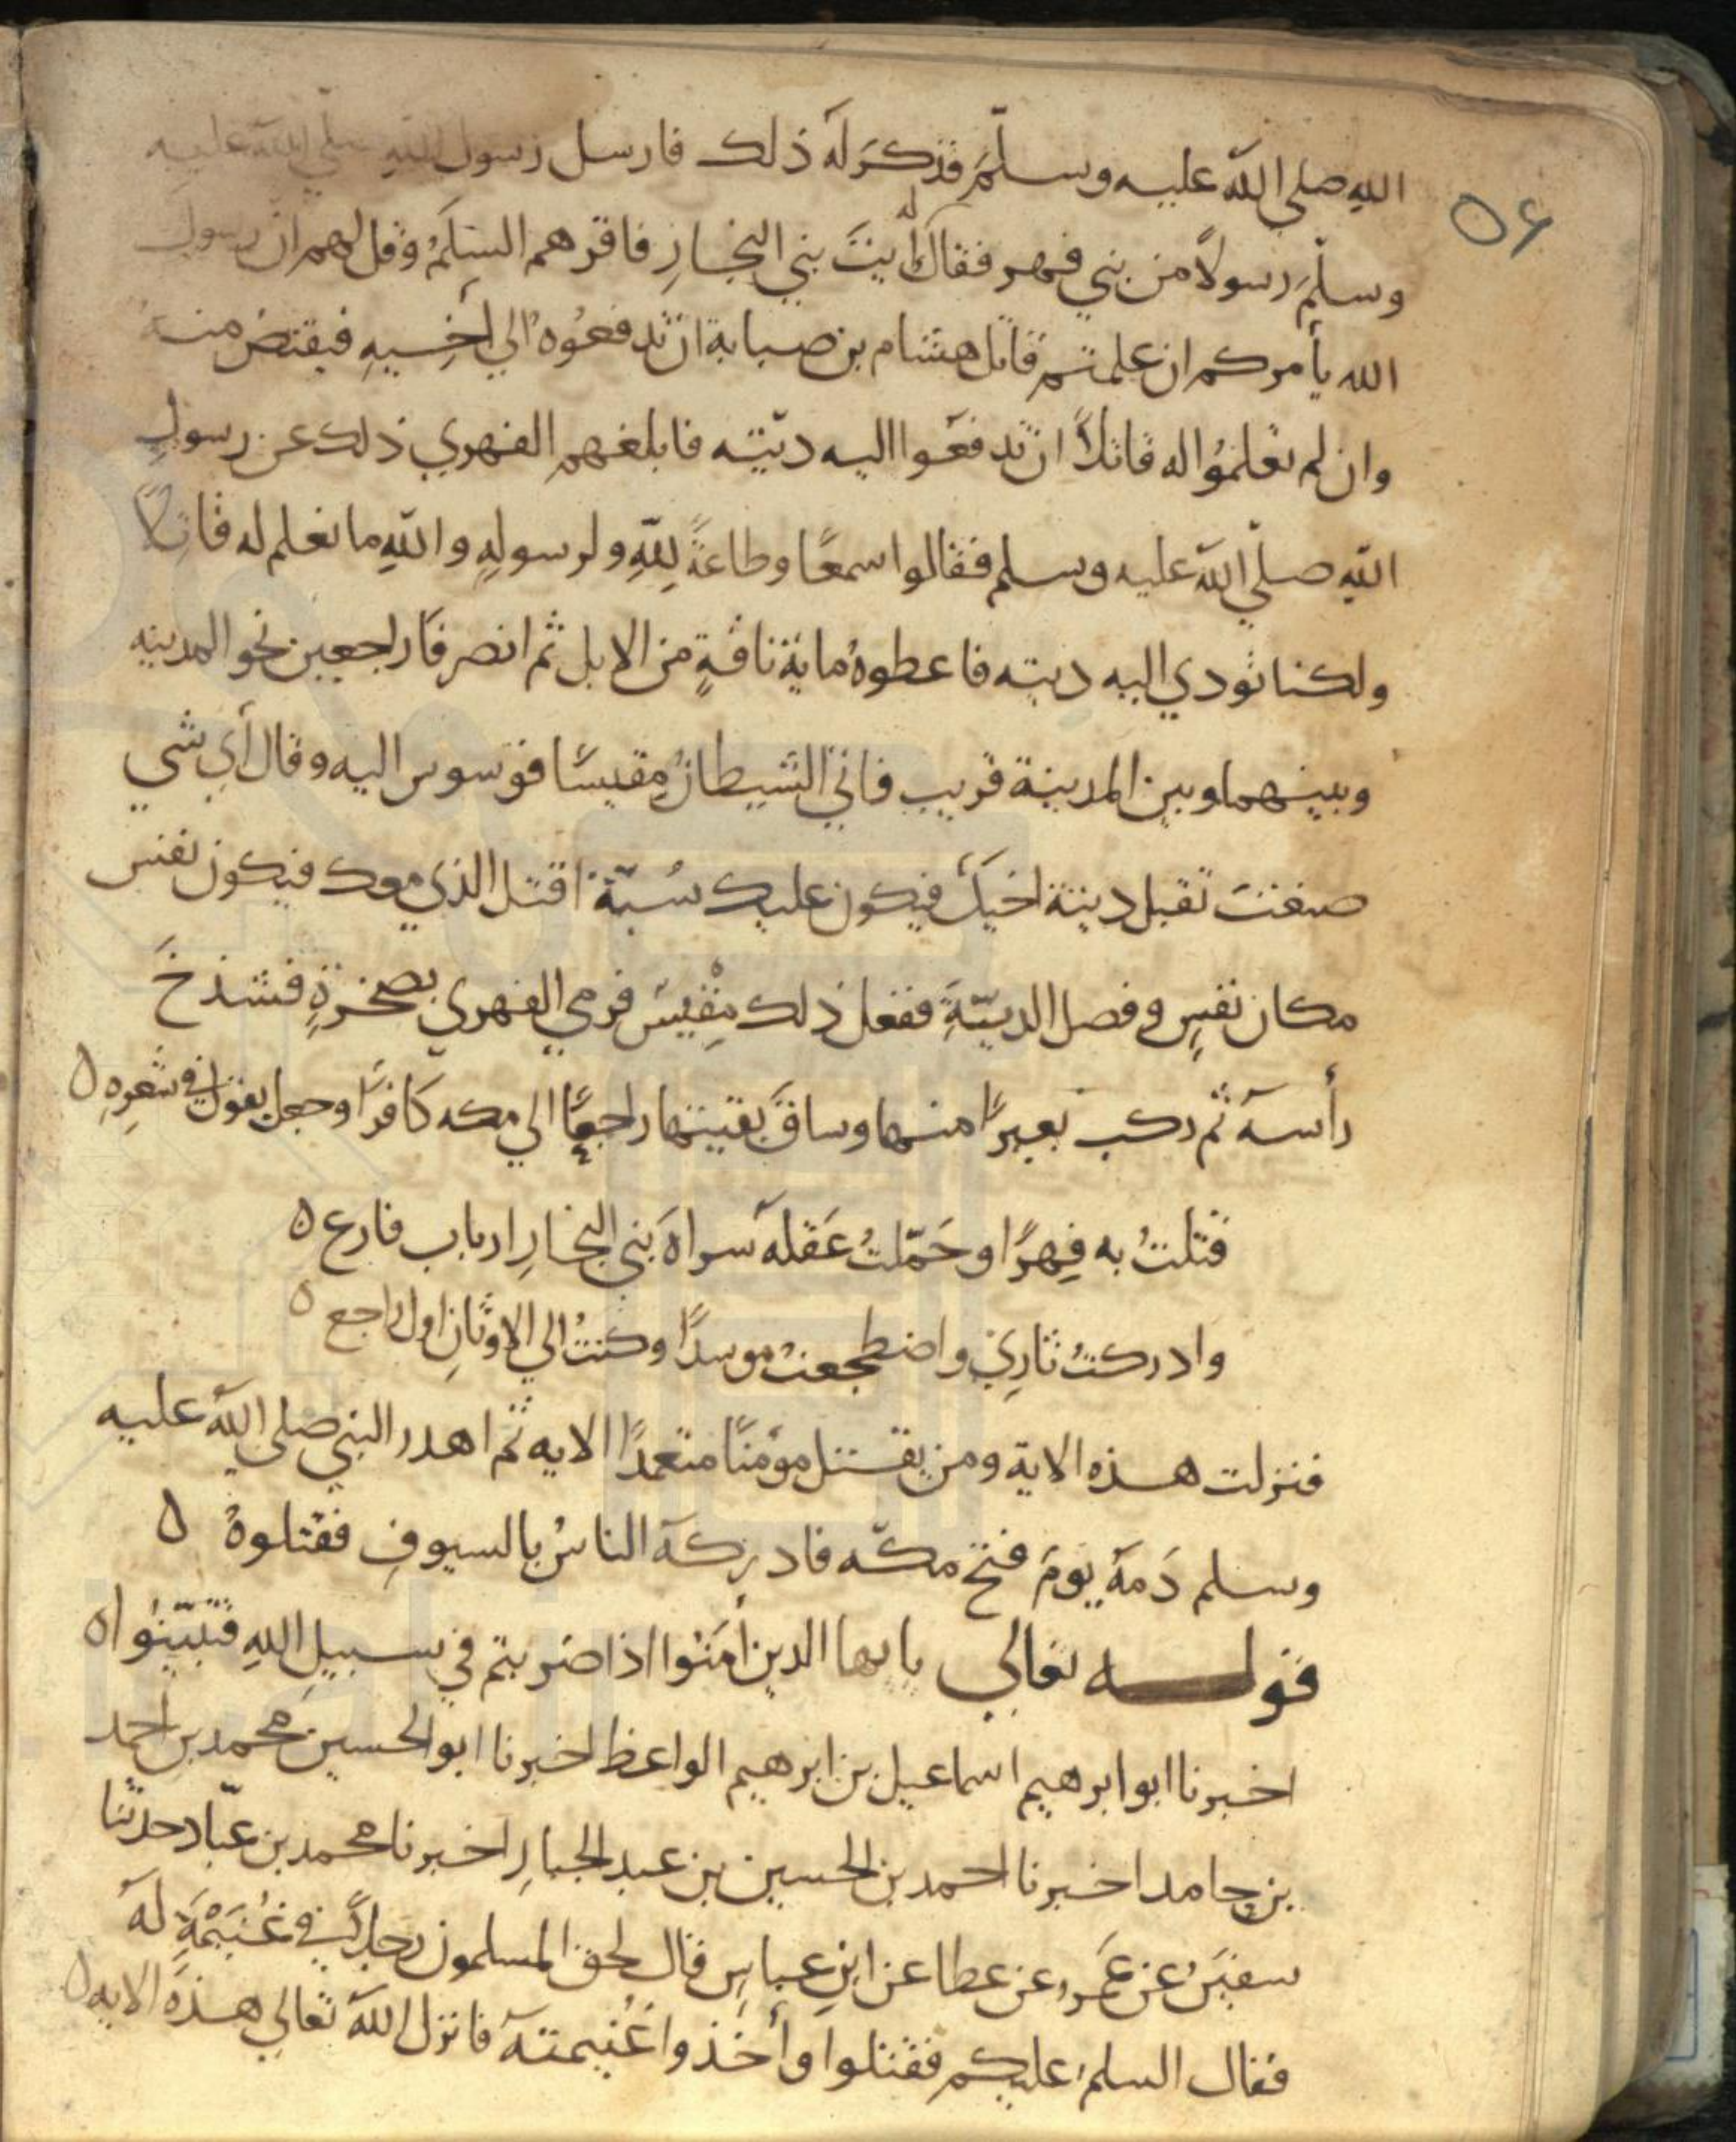 ٥٦
الله صلى الله عليه وسلم فذكر له ذلك فارسل رسول الله صلى الله عليه
وسلم رسولاً من بني فهر فقال له ايت بني النجار فاقرهم السلم وقل لهم ان رسول
الله يأمركم ان علمتم قاتل هشام بن صبابة ان تدفعوه الي أخيه فيقتص منه
وان لم تعلموا له قاتلاً ان تدفعوا اليه ديته فابلغهم الفهري ذلك عن رسول
الله صلى الله عليه وسلم فقالوا سمعًا وطاعةً لله ولرسوله والله ما نعلم له قاتلاً
ولكنا نودي اليه ديته فاعطوه ماية ناقةٍ من الابل ثم انصرفا راجعين نحو المدينه
وبينهما وبين المدينة قريب فاتي الشيطان مقيسًا فوسوس اليه وقال أي شي
صنعت تقبل دية اخيك فيكون عليك سُبّة اقتل الذي معك فيكون نفس
مكان نفسٍ وفضل الديّة ففعل ذلك مقيس فرمي الفهري بصخرةٍ فشدخ
رأسه ثم ركب بعيرًا منها وساق بقيتها راجعًا الي مكه كافرًا وجعل يقول في شعره ٥
قتلتُ به فِهرًا وحَمّلتُ عَقله سراة بني النجارِ ارباب فارع ٥
وادركتُ ثاري واضطجعت موسدًا وكنتُ الي الاوثانِ اول راجع ٥
فنزلت هذه الاية ومن يقتل مؤمنًا متعمدًا الايه ثم اهدر النبي صلى الله عليه
وسلم دَمه يومَ فتح مكّه فادركه الناسُ بالسيوفِ فقتلوهُ ٥
قوله تعالي يايها الذين أمنوا اذا ضربتم في سبيلِ اللهِ فتبيّنوا ٥
اخبرنا ابو ابرهيم اسماعيل بن ابرهيم الواعظ اخبرنا ابو الحسين محمد بن احمد
بن حامد اخبرنا احمد بن الحسين بن عبد الجبارِ اخبرنا محمد بن عبّاد حدثنا
سفين عن عمرو عن عطا عن ابن عباسٍ قال لحق المسلمون رجلاً في غُنَيْمَةٍ له
فقال السلم عليكم فقتلوا وأخذوا غُنيمته فانزل الله تعالي هذه الايه ٥